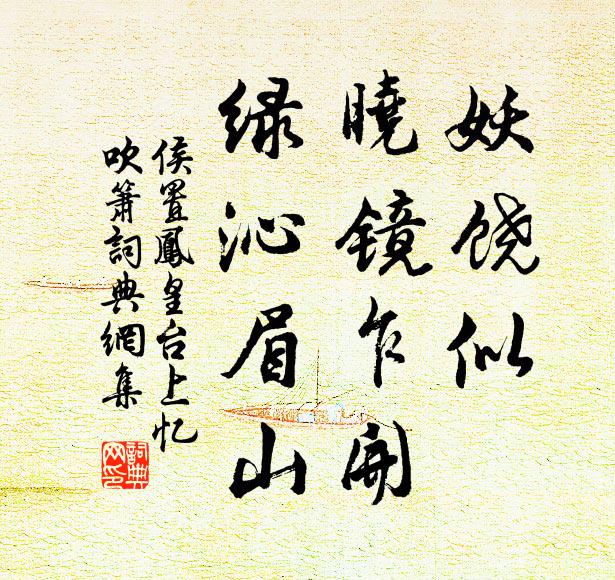 妖饶似
曉鏡乍開
绿沁眉山
侯置鳳皇台上忆
吹簫詞典網集
詞典
网印